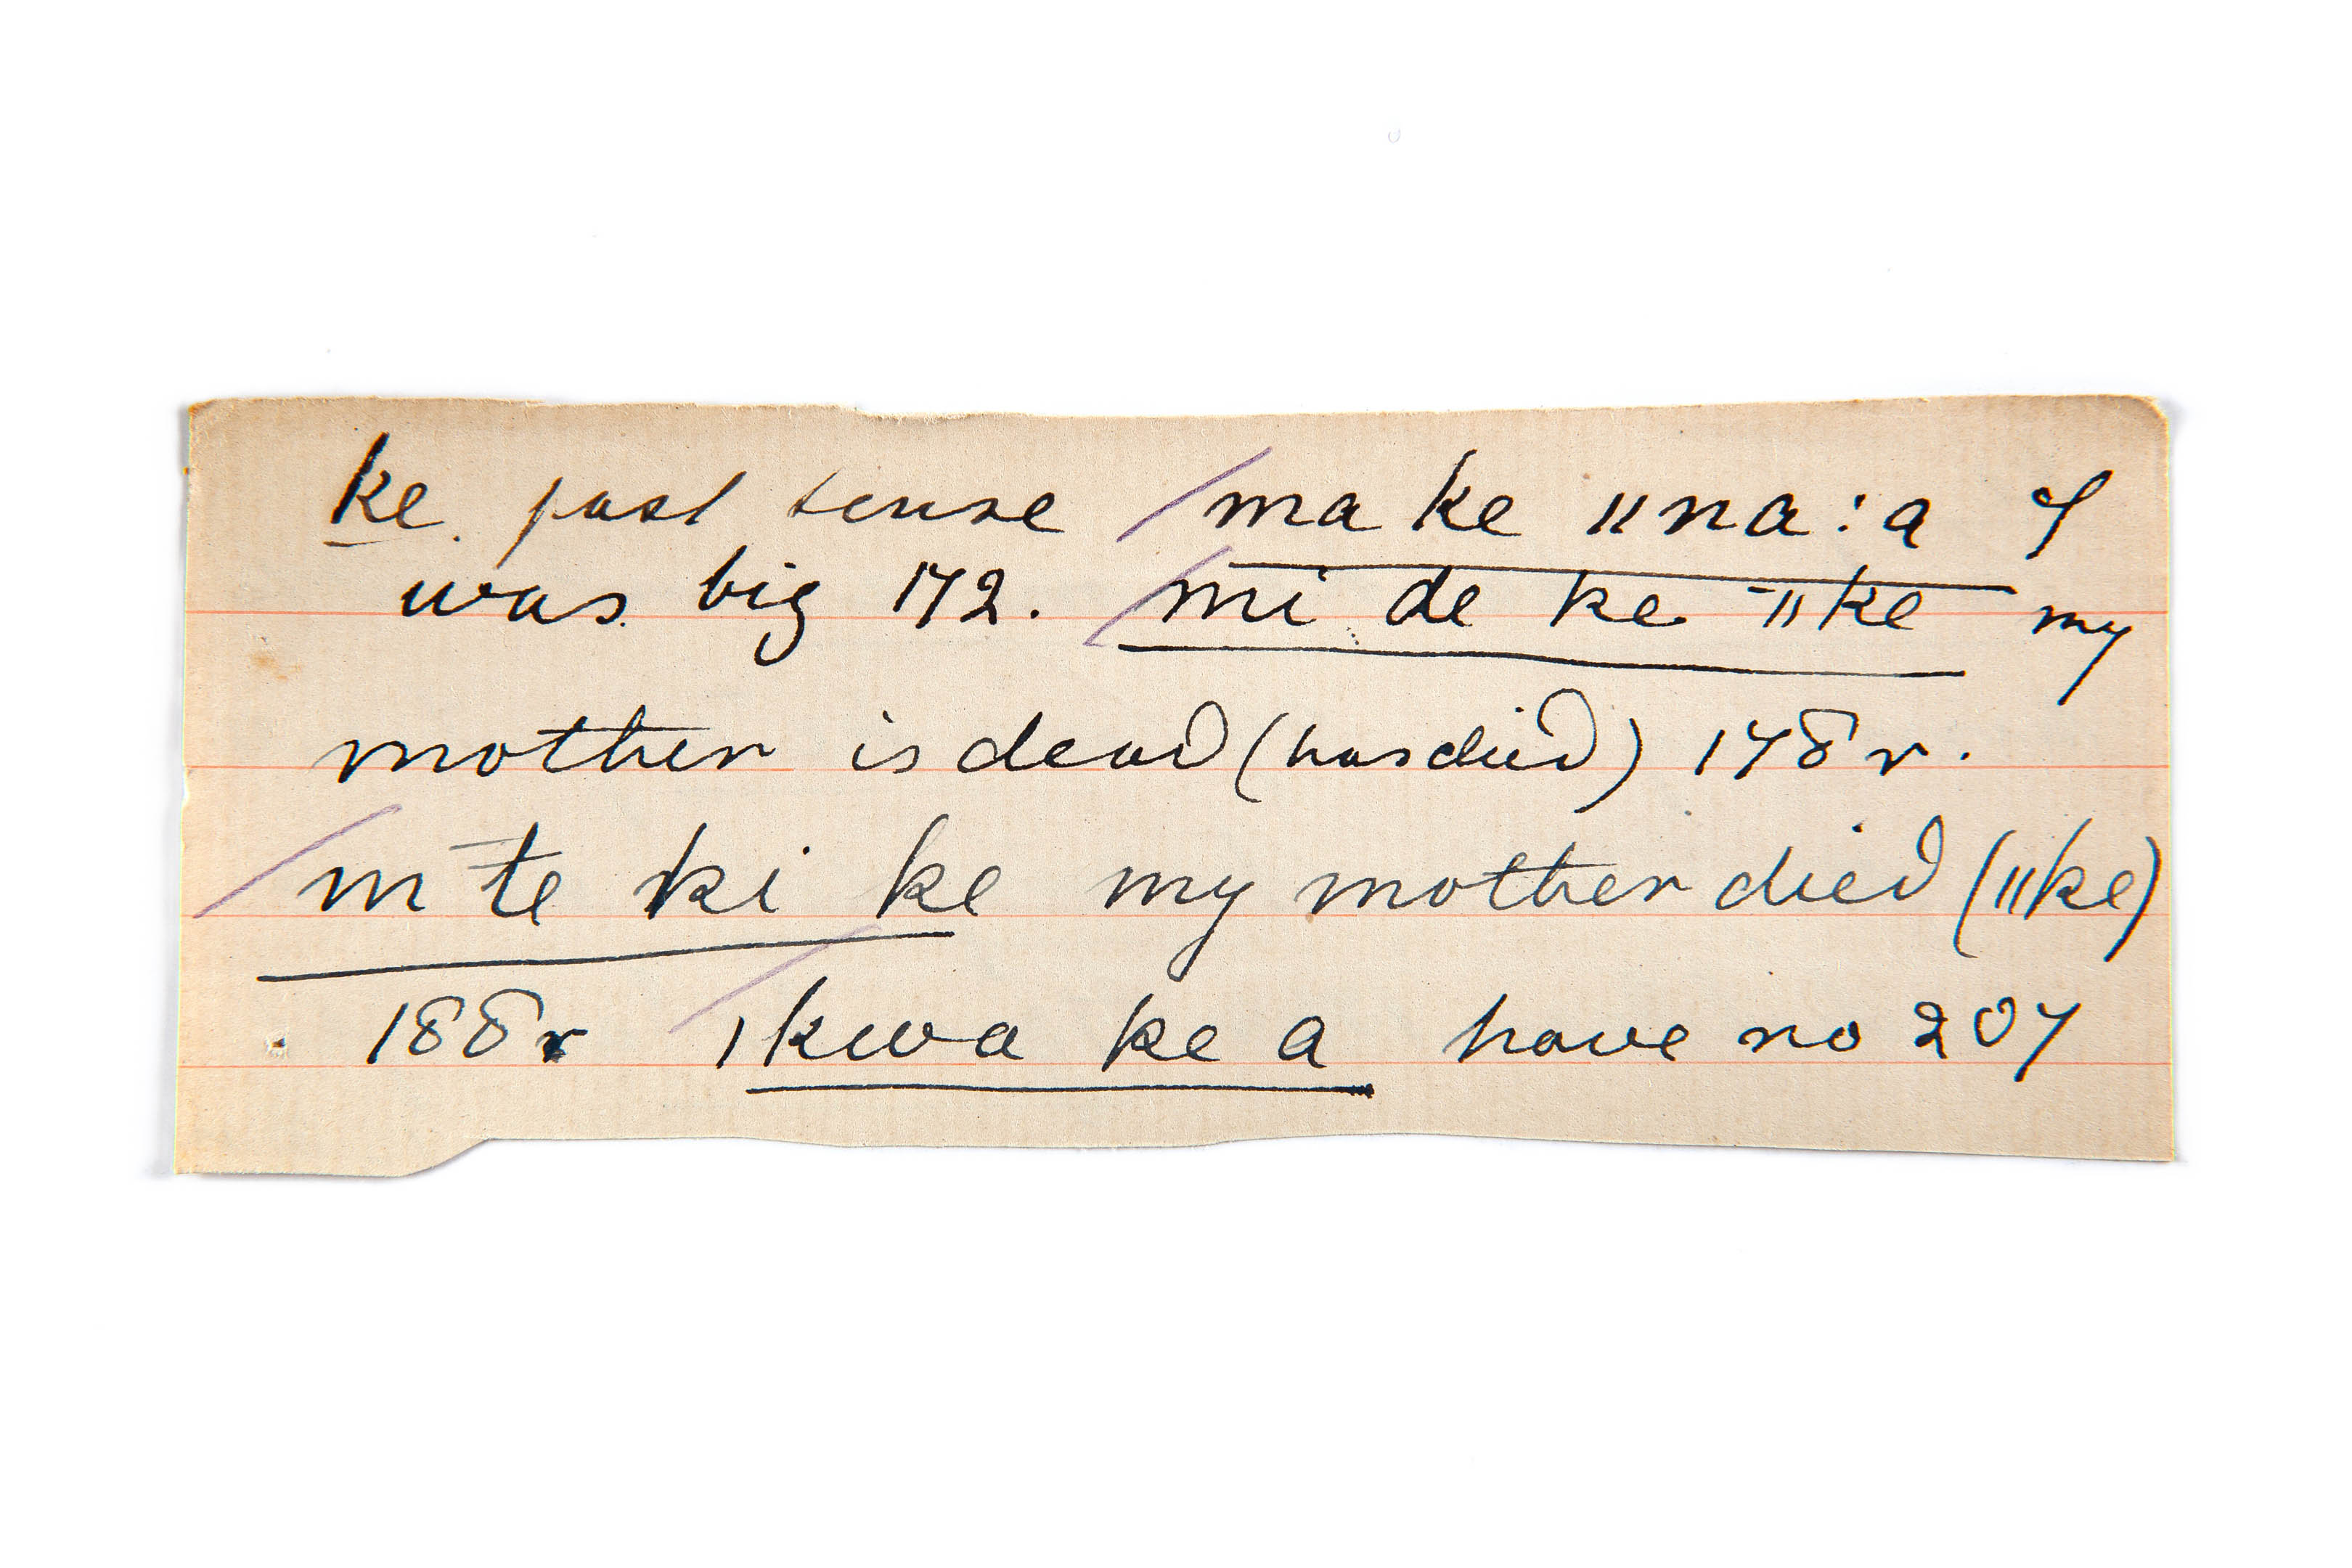 ke. past tense ma ke ǁna:a I
was big 172. mi de ke ‾ǁke my
mother is dead (has died) 178 r.
m ‾te ki ke my mother died (ǁke)
188r ǀkwa ke a have no 207